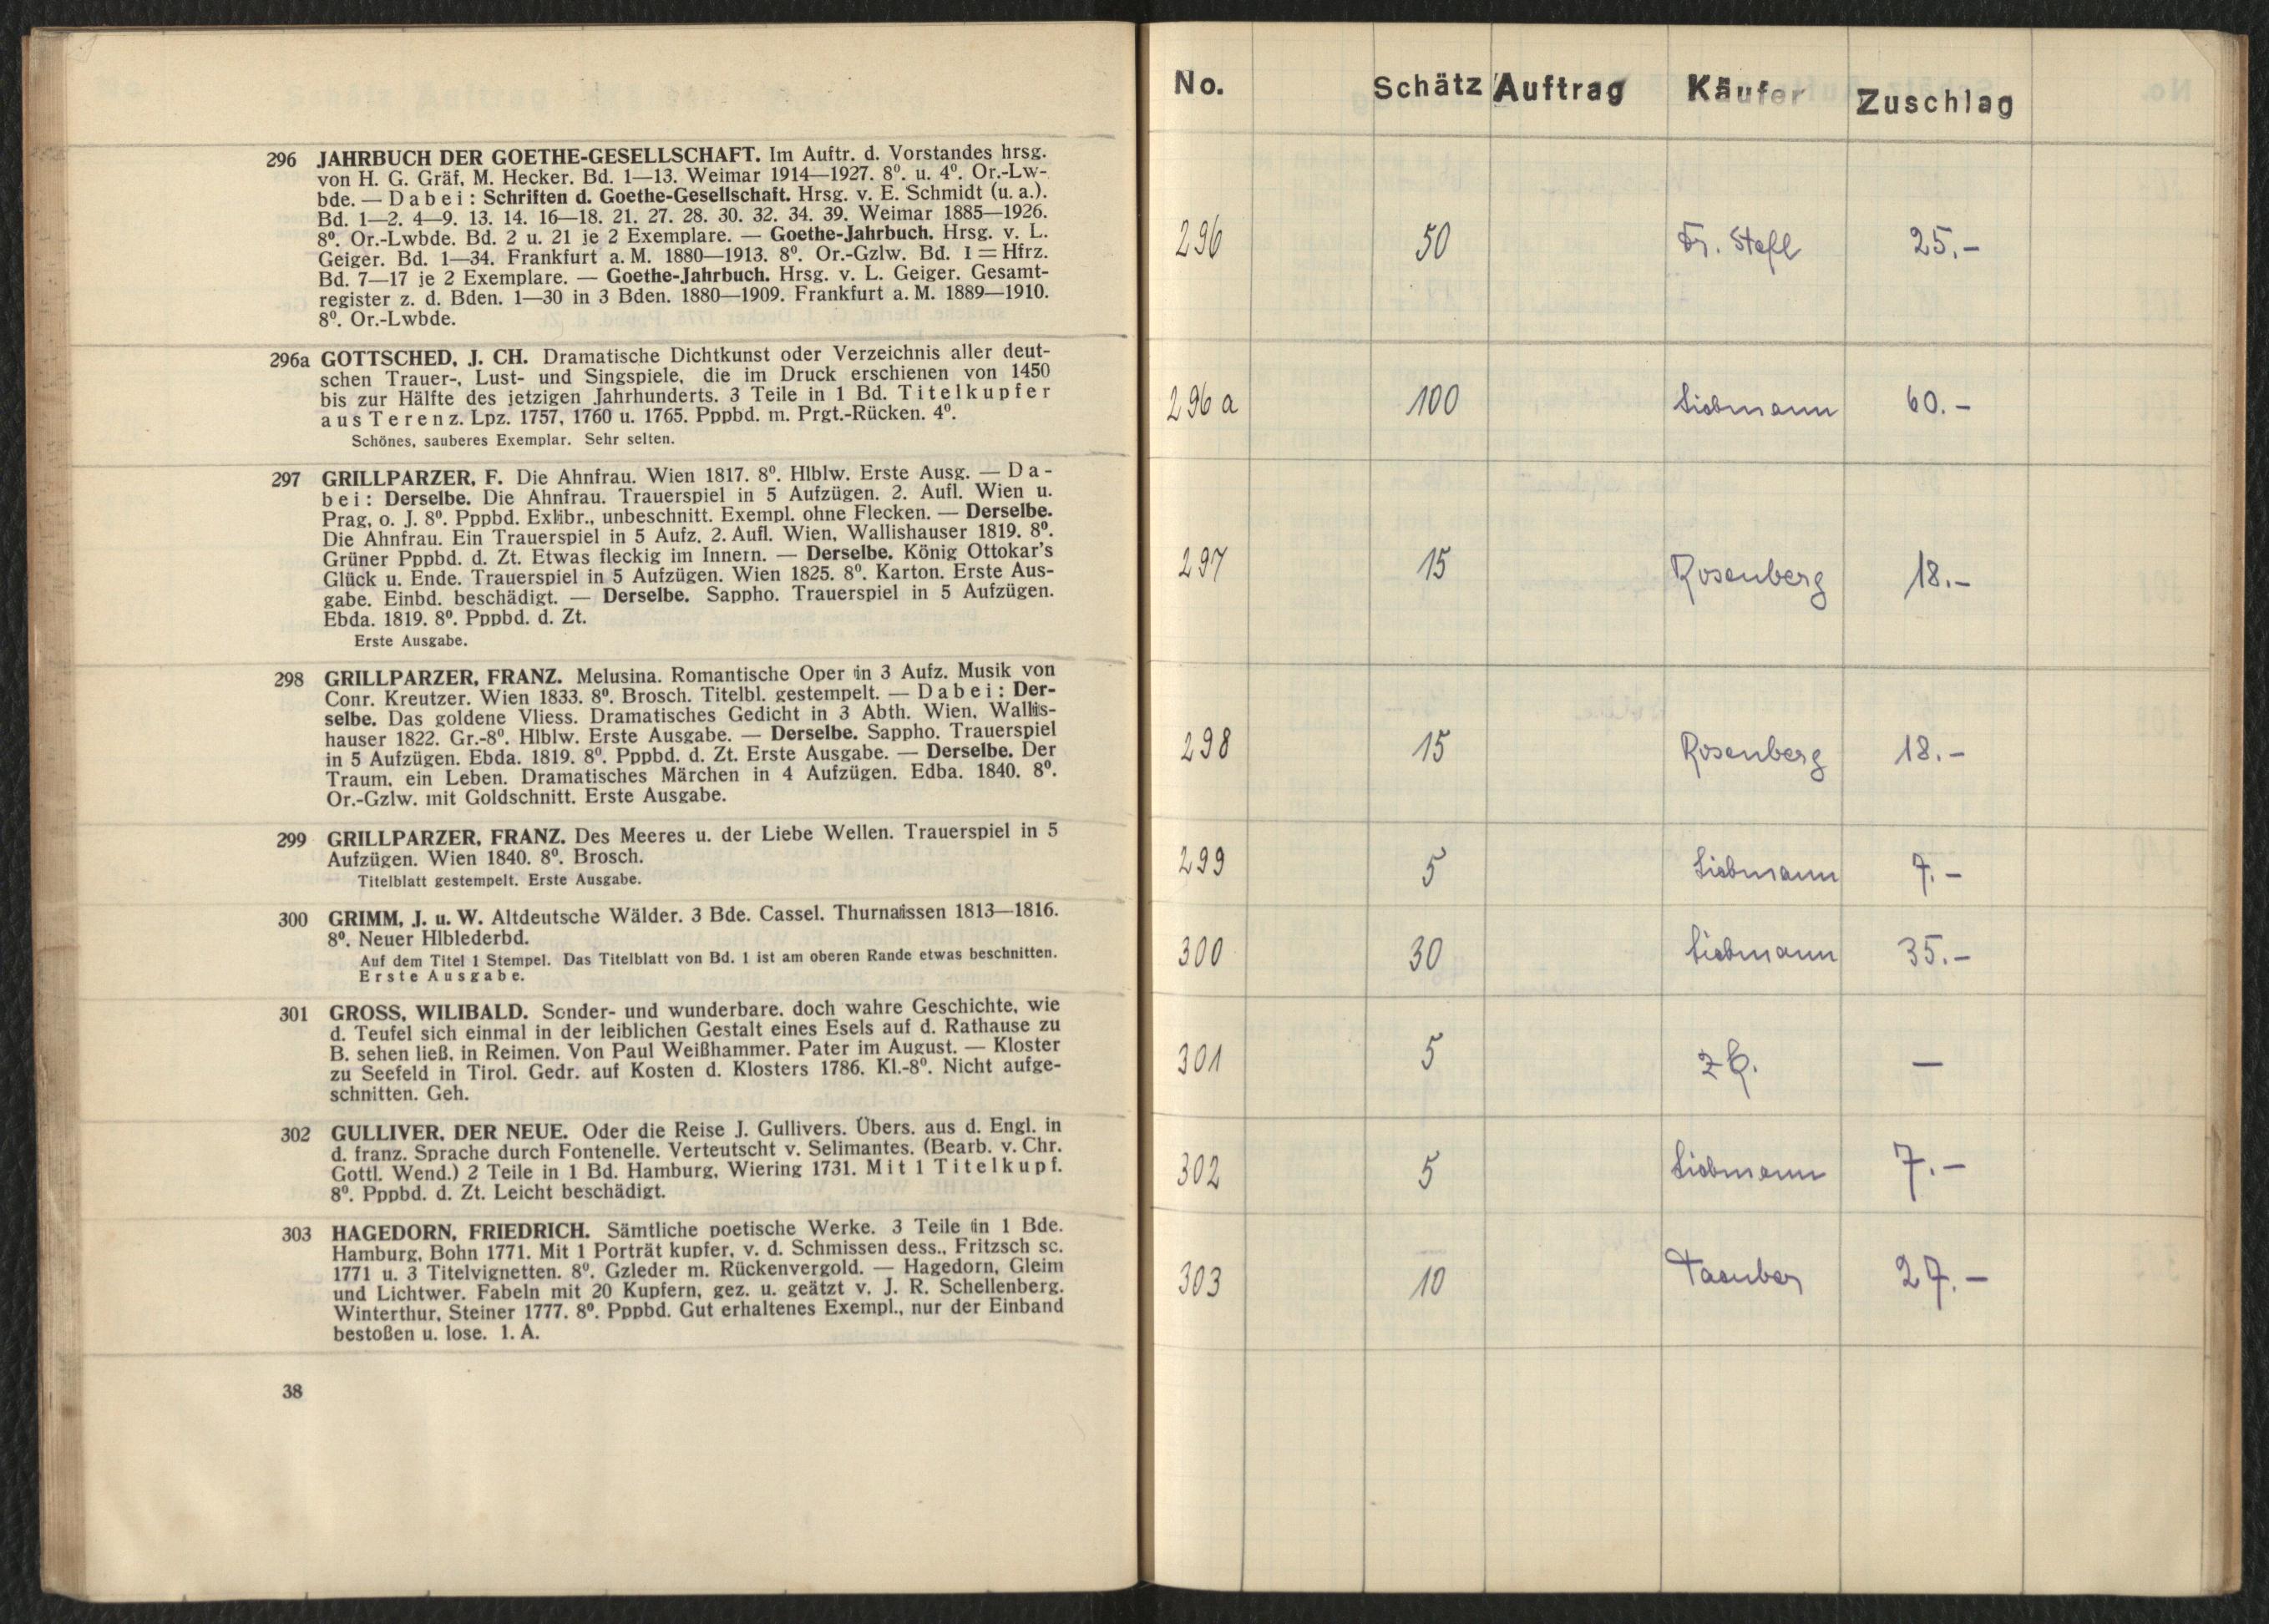 296 JAHRBUCH DER GOETHE-GESELLSCHAFT. Im Auftr. d. Vorstandes hrsg.
von H. G. Gräf, M. Hecker. Bd. 1—13. Weimar 1914—1927. 8⁰. u. 4⁰. Or.-Lw-
bde. — Dabei: Schriften d. Goethe-Gesellschaft. Hrsg. v. E. Schmidt (u. a.).
Bd. 1—2. 4—9. 13. 14. 16—18. 21. 27. 28. 30. 32. 34. 39. Weimar 1885—1926.
8⁰. Or.-Lwbde. Bd. 2 u. 21 je 2 Exemplare. — Goethe-Jahrbuch. Hrsg. v. L.
Geiger. Bd. 1—34. Frankfurt a. M. 1880—1913. 8⁰. Or.-Gzlw. Bd. 1 = Hfrz.
Bd. 7—17 je 2 Exemplare. — Goethe-Jahrbuch. Hrsg. v. L. Geiger. Gesamt-
register z. d. Bden. 1—30 in 3 Bden. 1880—1909. Frankfurt a. M. 1889—1910.
8⁰. Or.-Lwbde.
296a GOTTSCHED, J. CH. Dramatische Dichtkunst oder Verzeichnis aller deut-
schen Trauer-, Lust- und Singspiele, die im Druck erschienen von 1450
bis zur Hälfte des jetzigen Jahrhunderts. 3 Teile in 1 Bd. Titelkupfer
aus Terenz. Lpz. 1757, 1760 u. 1765. Pppbd. m. Prgt.-Rücken. 4⁰.
Schönes, sauberes Exemplar. Sehr selten.
297 GRILLPARZER, F. Die Ahnfrau. Wien 1817. 8⁰. Hlblw. Erste Ausg. — Da-
bei: Derselbe. Die Ahnfrau. Trauerspiel in 5 Aufzügen. 2. Aufl. Wien u.
Prag, o. J. 8⁰. Pppbd. Exlibr., unbeschnitt. Exempl. ohne Flecken. — Derselbe.
Die Ahnfrau. Ein Trauerspiel in 5 Aufz. 2. Aufl. Wien, Wallishauser 1819. 8⁰.
Grüner Pppbd. d. Zt. Etwas fleckig im Innern. — Derselbe. König Ottokar's
Glück u. Ende. Trauerspiel in 5 Aufzügen. Wien 1825. 8⁰. Karton. Erste Aus-
gabe. Einbd. beschädigt. — Derselbe. Sappho. Trauerspiel in 5 Aufzügen.
Ebda. 1819. 8⁰. Pppbd. d. Zt.
Erste Ausgabe.
298 GRILLPARZER, FRANZ. Melusina. Romantische Oper in 3 Aufz. Musik von
Conr. Kreutzer. Wien 1833. 8⁰. Brosch. Titelbl. gestempelt. — Dabei: Der-
selbe. Das goldene Vliess. Dramatisches Gedicht in 3 Abth. Wien, Wallis-
hauser 1822. Gr.-8⁰. Hlblw. Erste Ausgabe. — Derselbe. Sappho. Trauerspiel
in 5 Aufzügen. Ebda. 1819. 8⁰. Pppbd. d. Zt. Erste Ausgabe. — Derselbe. Der
Traum, ein Leben. Dramatisches Märchen in 4 Aufzügen. Edba. 1840. 8⁰.
Or.-Gzlw. mit Goldschnitt. Erste Ausgabe.
299 GRILLPARZER, FRANZ. Des Meeres u. der Liebe Wellen. Trauerspiel in 5
Aufzügen. Wien 1840. 8⁰. Brosch.
Titelblatt gestempelt. Erste Ausgabe.
300 GRIMM, J. u. W. Altdeutsche Wälder. 3 Bde. Cassel. Thurnaissen 1813—1816.
8⁰. Neuer Hlblederbd.
Auf dem Titel 1 Stempel. Das Titelblatt von Bd. 1 ist am oberen Rande etwas beschnitten.
Erste Ausgabe.
301 GROSS, WILIBALD. Sonder- und wunderbare, doch wahre Geschichte, wie
d. Teufel sich einmal in der leiblichen Gestalt eines Esels auf d. Rathause zu
B. sehen ließ, in Reimen. Von Paul Weißhammer. Pater im August. — Kloster
zu Seefeld in Tirol. Gedr. auf Kosten d. Klosters 1786. Kl.-8⁰. Nicht aufge-
schnitten. Geh.
302 GULLIVER, DER NEUE. Oder die Reise J. Gullivers. Übers. aus d. Engl. in
d. franz. Sprache durch Fontenelle. Verteutscht v. Selimantes. (Bearb. v. Chr.
Gottl. Wend.) 2 Teile in 1 Bd. Hamburg, Wiering 1731. Mit 1 Titelkupf.
8⁰. Pppbd. d. Zt. Leicht beschädigt.
303 HAGEDORN, FRIEDRICH. Sämtliche poetische Werke. 3 Teile in 1 Bde.
Hamburg, Bohn 1771. Mit 1 Porträt kupfer, v. d. Schmissen dess., Fritzsch sc.
1771 u. 3 Titelvignetten. 8⁰. Gzleder m. Rückenvergold. — Hagedorn, Gleim
und Lichtwer. Fabeln mit 20 Kupfern, gez. u. geätzt v. J. R. Schellenberg.
Winterthur, Steiner 1777. 8⁰. Pppbd. Gut erhaltenes Exempl., nur der Einband
bestoßen u. lose. 1. A.
38
No. Schätz Auftrag Käufer Zuschlag
296 50 Fr. Stefl 25.-
296 a 100 Liebmann 60.-
297 15 Rosenberg 18.-
298 15 Rosenberg 18.-
299 5 Liebmann 7.-
300 30 Liebmann 35.-
301 5 —
302 5 Liebmann 7.-
303 10 Taeuber 27.-